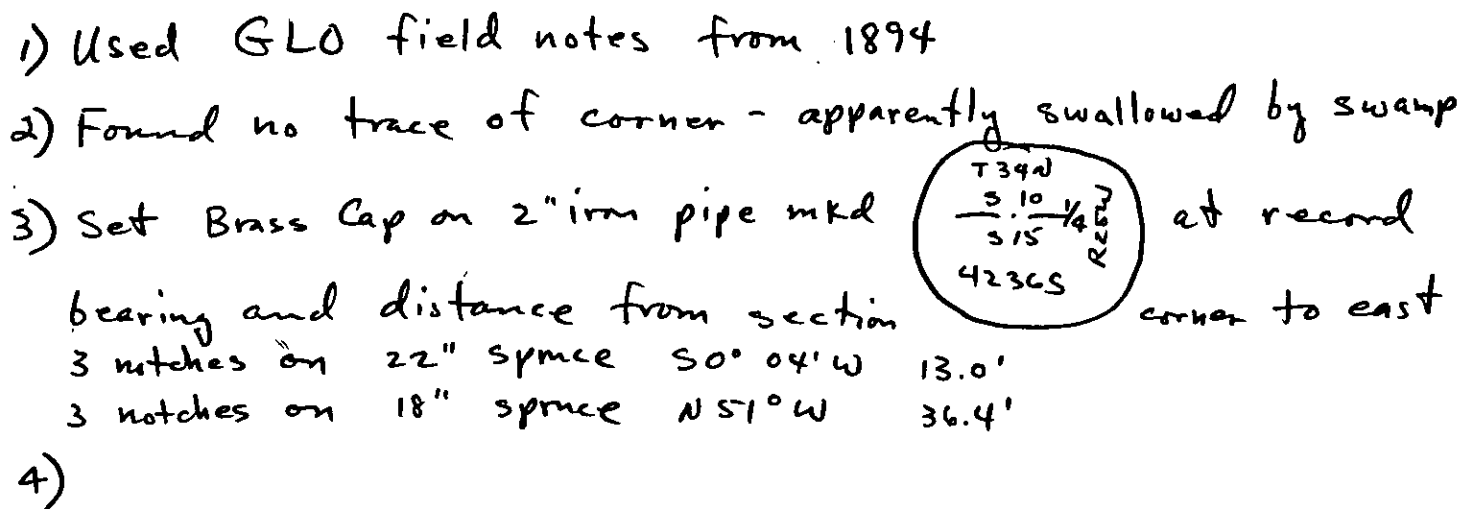 1) Used GLO field notes from 1894
2) Found no trace of corner - apparently swallowed by swamp
3) Set Brass Cap on 2" iron pipe mkd
T34N
S 10
1/4
S 15
4236S
at record
bearing and distance from section corner to east
3 notches on 22" spruce S0° 04' W 13.0'
3 notches on 18" spruce N 51° W 36.4'
4)